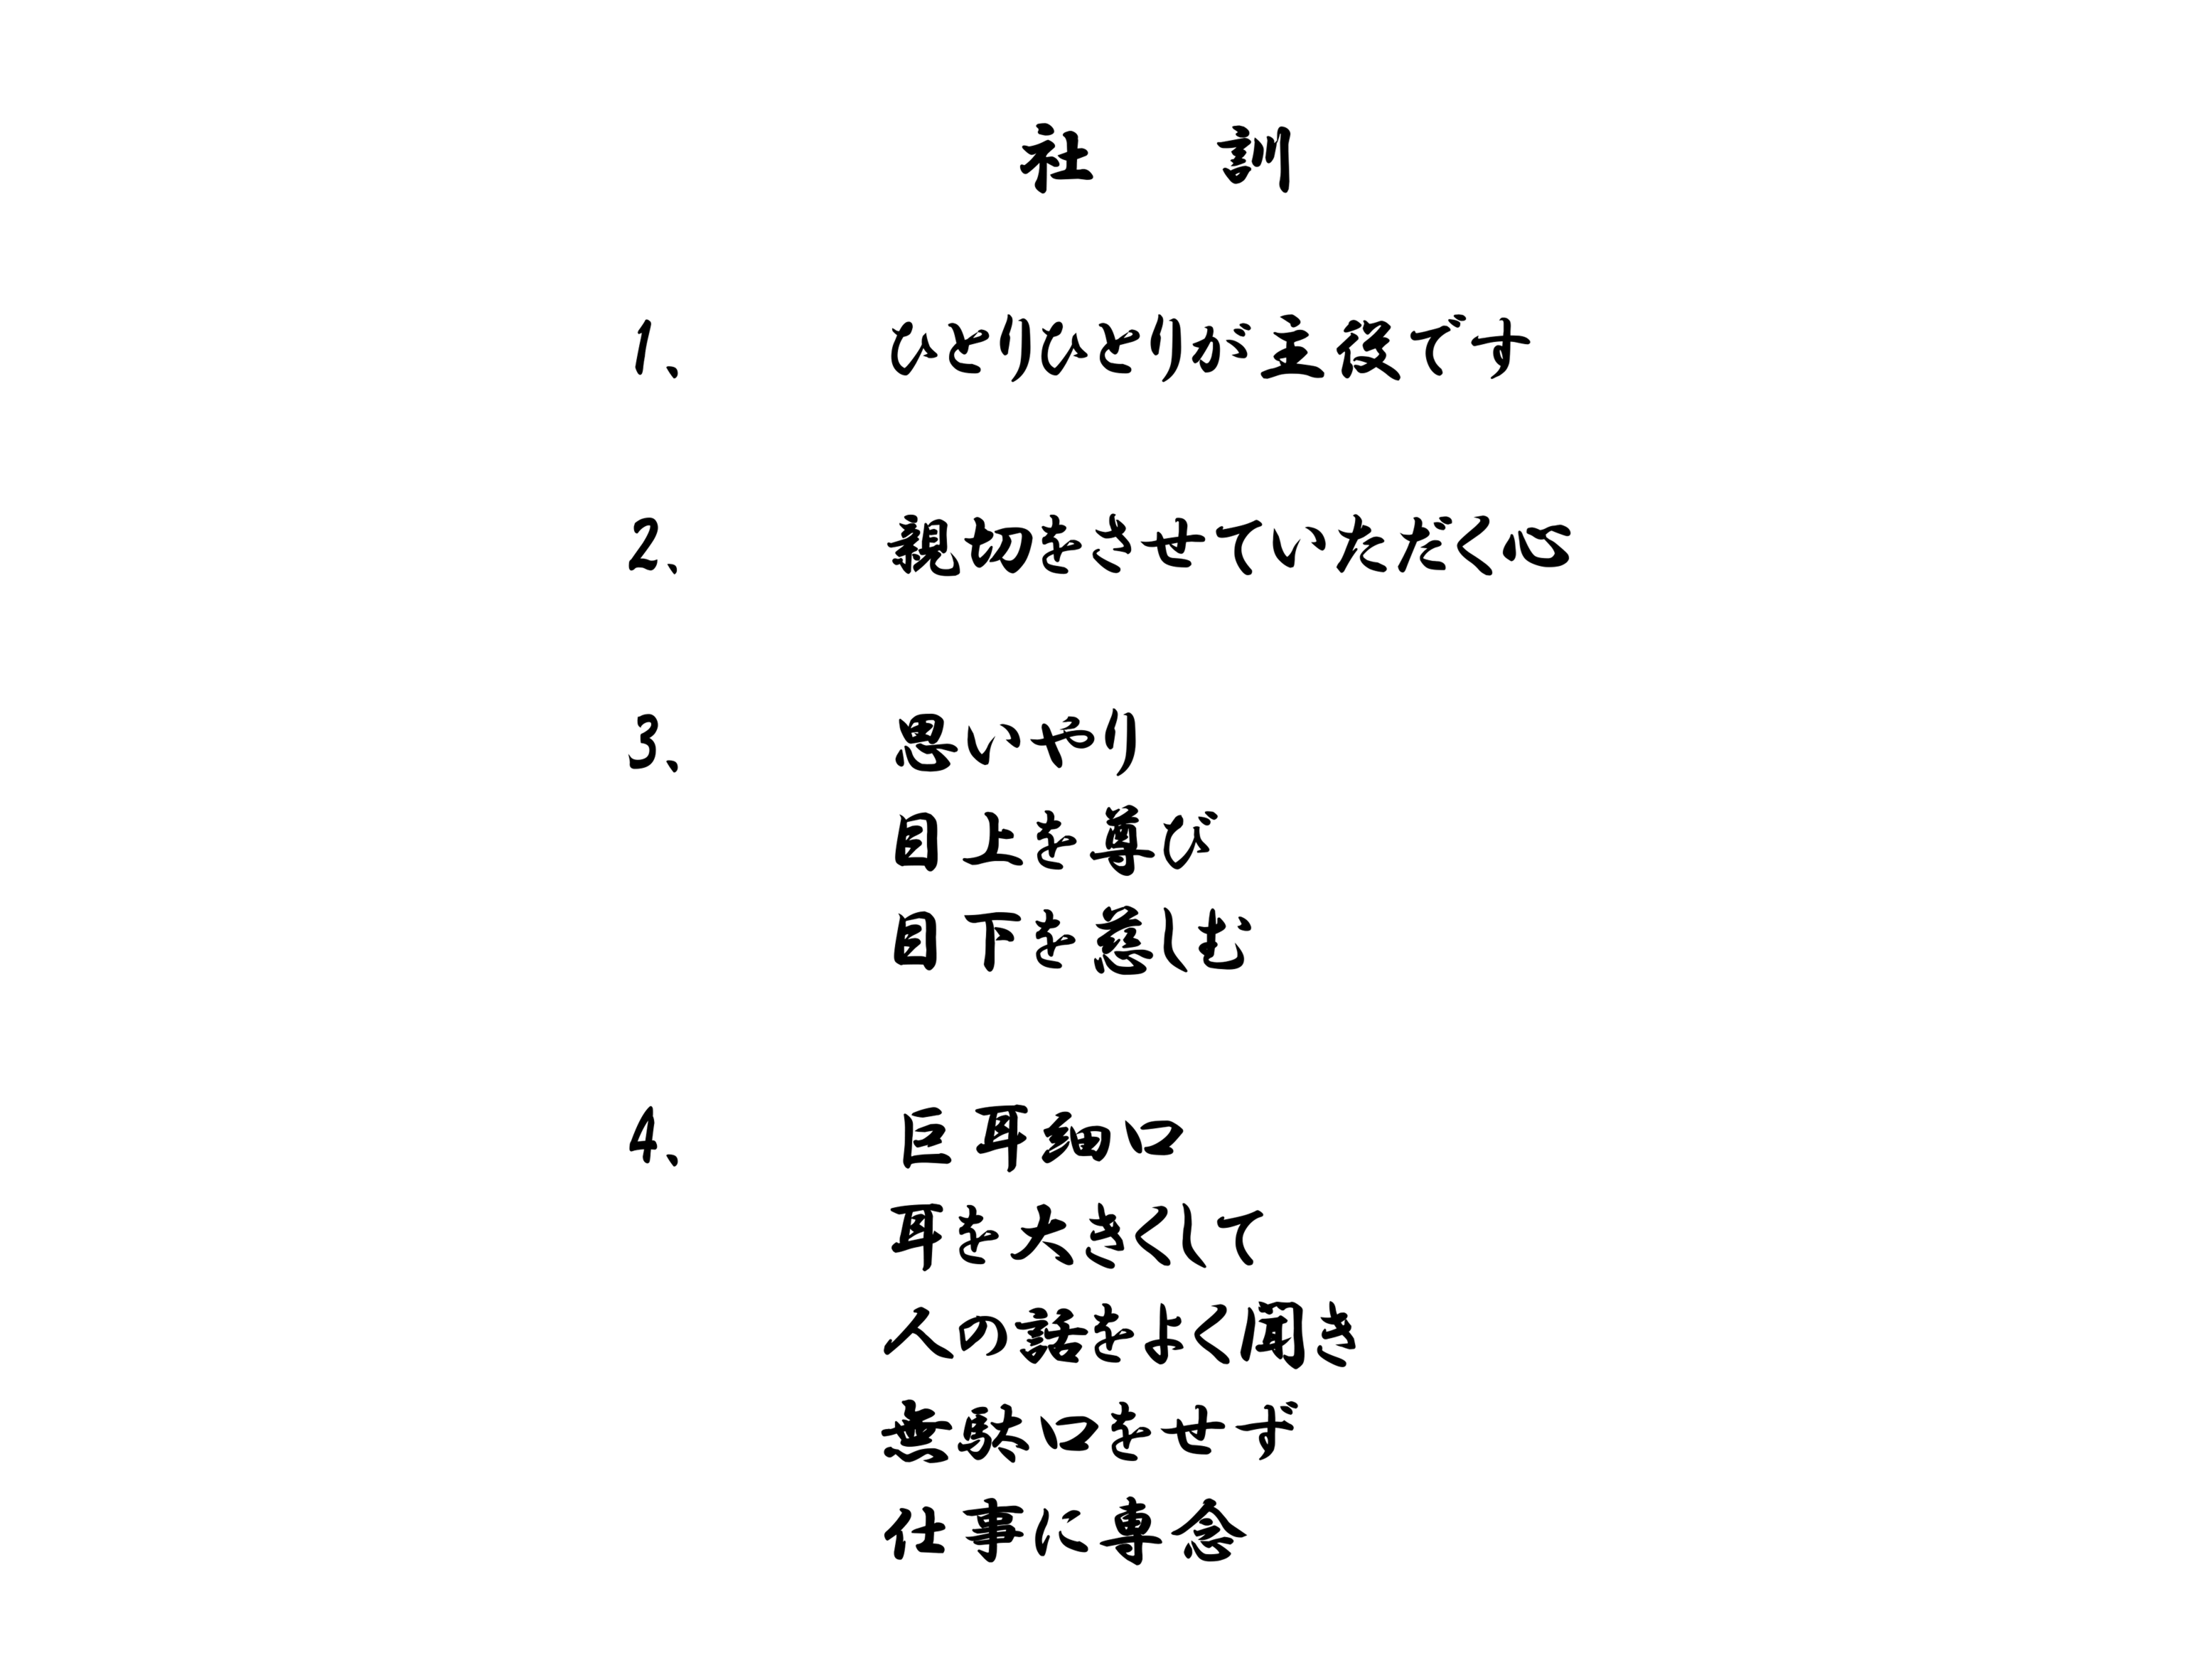 社　訓
1、 ひとりひとりが主役です
2、 親切をさせていただく心
3、 思いやり
目上を尊び
目下を慈しむ
4、 巨耳細口
耳を大きくして
人の話をよく聞き
無駄口をせず
仕事に専念